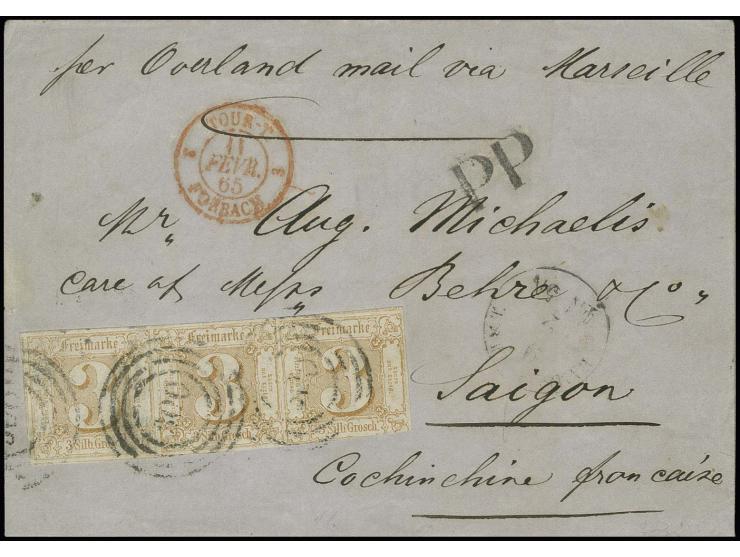 per Overland mail via Marseille
TOUR-T
3 11 3
FEVR.
65
FORBACH
PP
Mr, Aug. Michaelis
Care of Messrs Behre & Co,
Freimarke Freimarke Freimarke
3 3 3
3 Silb. Grosch. Silb. Grosch. Silb. Grosch.
Saigon
Cochinchine francaise